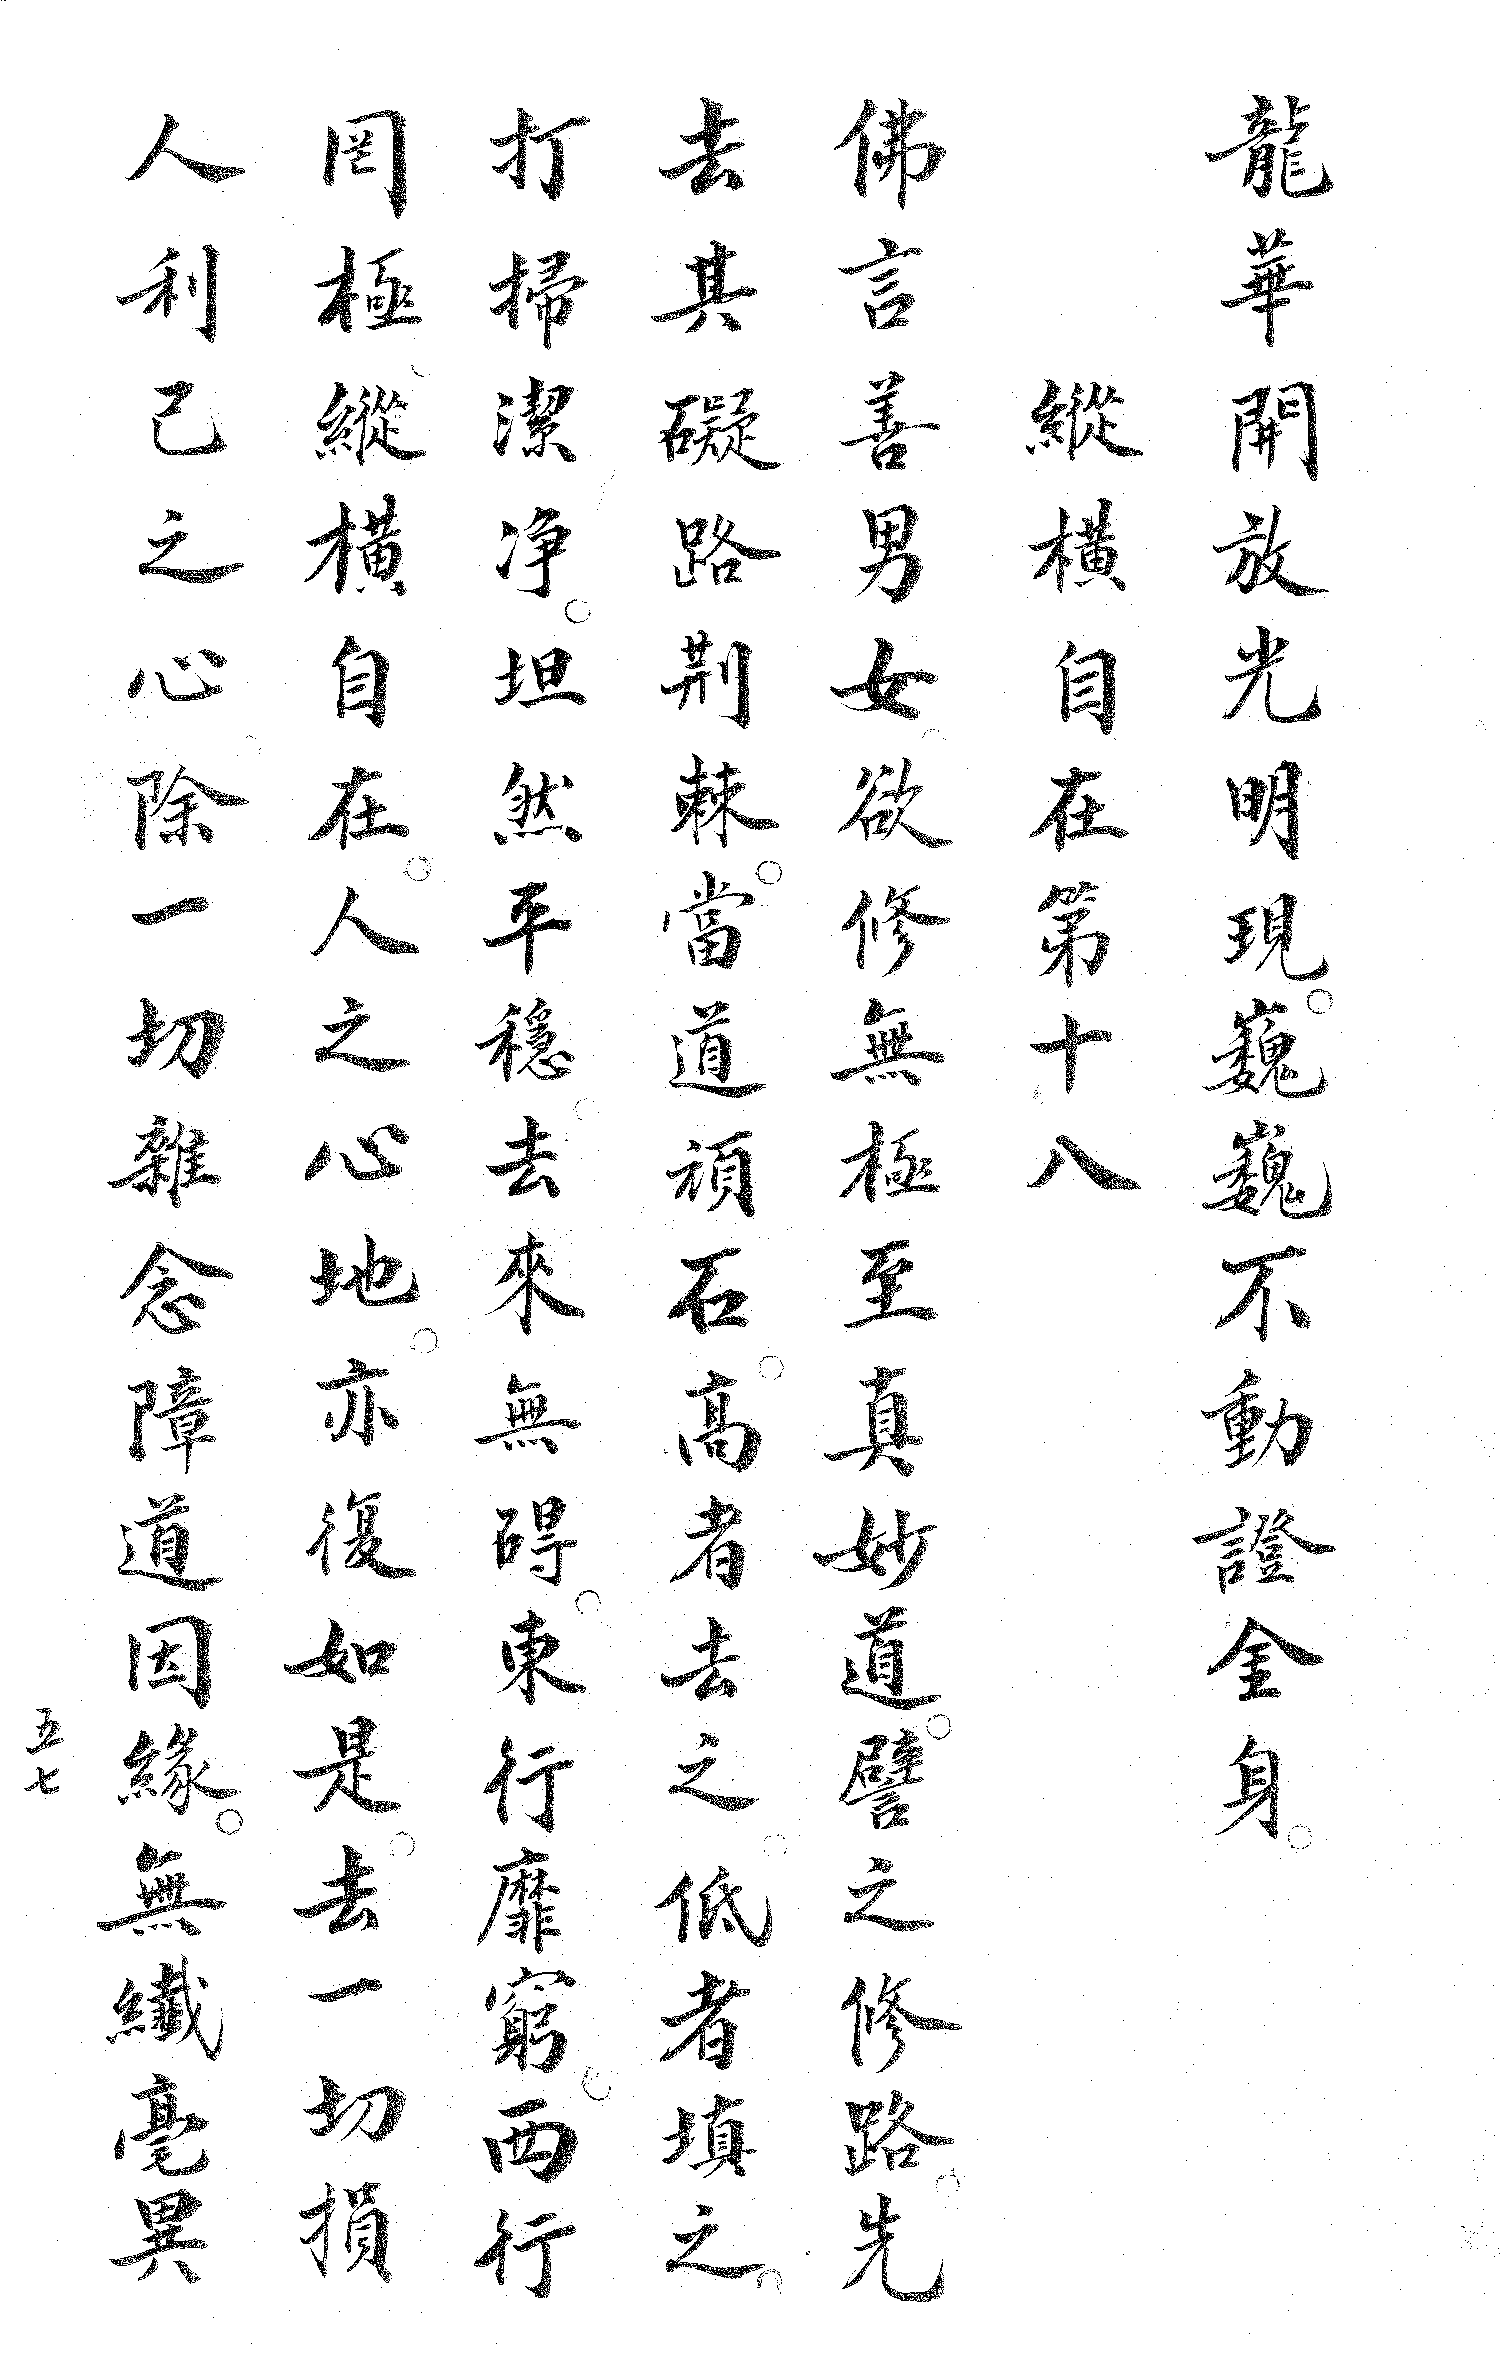 龍華開放光明現。巍巍不動證金身。
縱橫自在第十八
佛言善男女欲修無極至真妙道。譬之修路。先
去其礙路荆棘。當道頑石。高者去之。低者填之。
打掃潔净。坦然平穩。去來無碍。東行靡窮。西行
罔極。縱橫自在。人之心地。亦復如是。去一切損
人利己之心。除一切雜念障道因緣。無纖毫異
五七